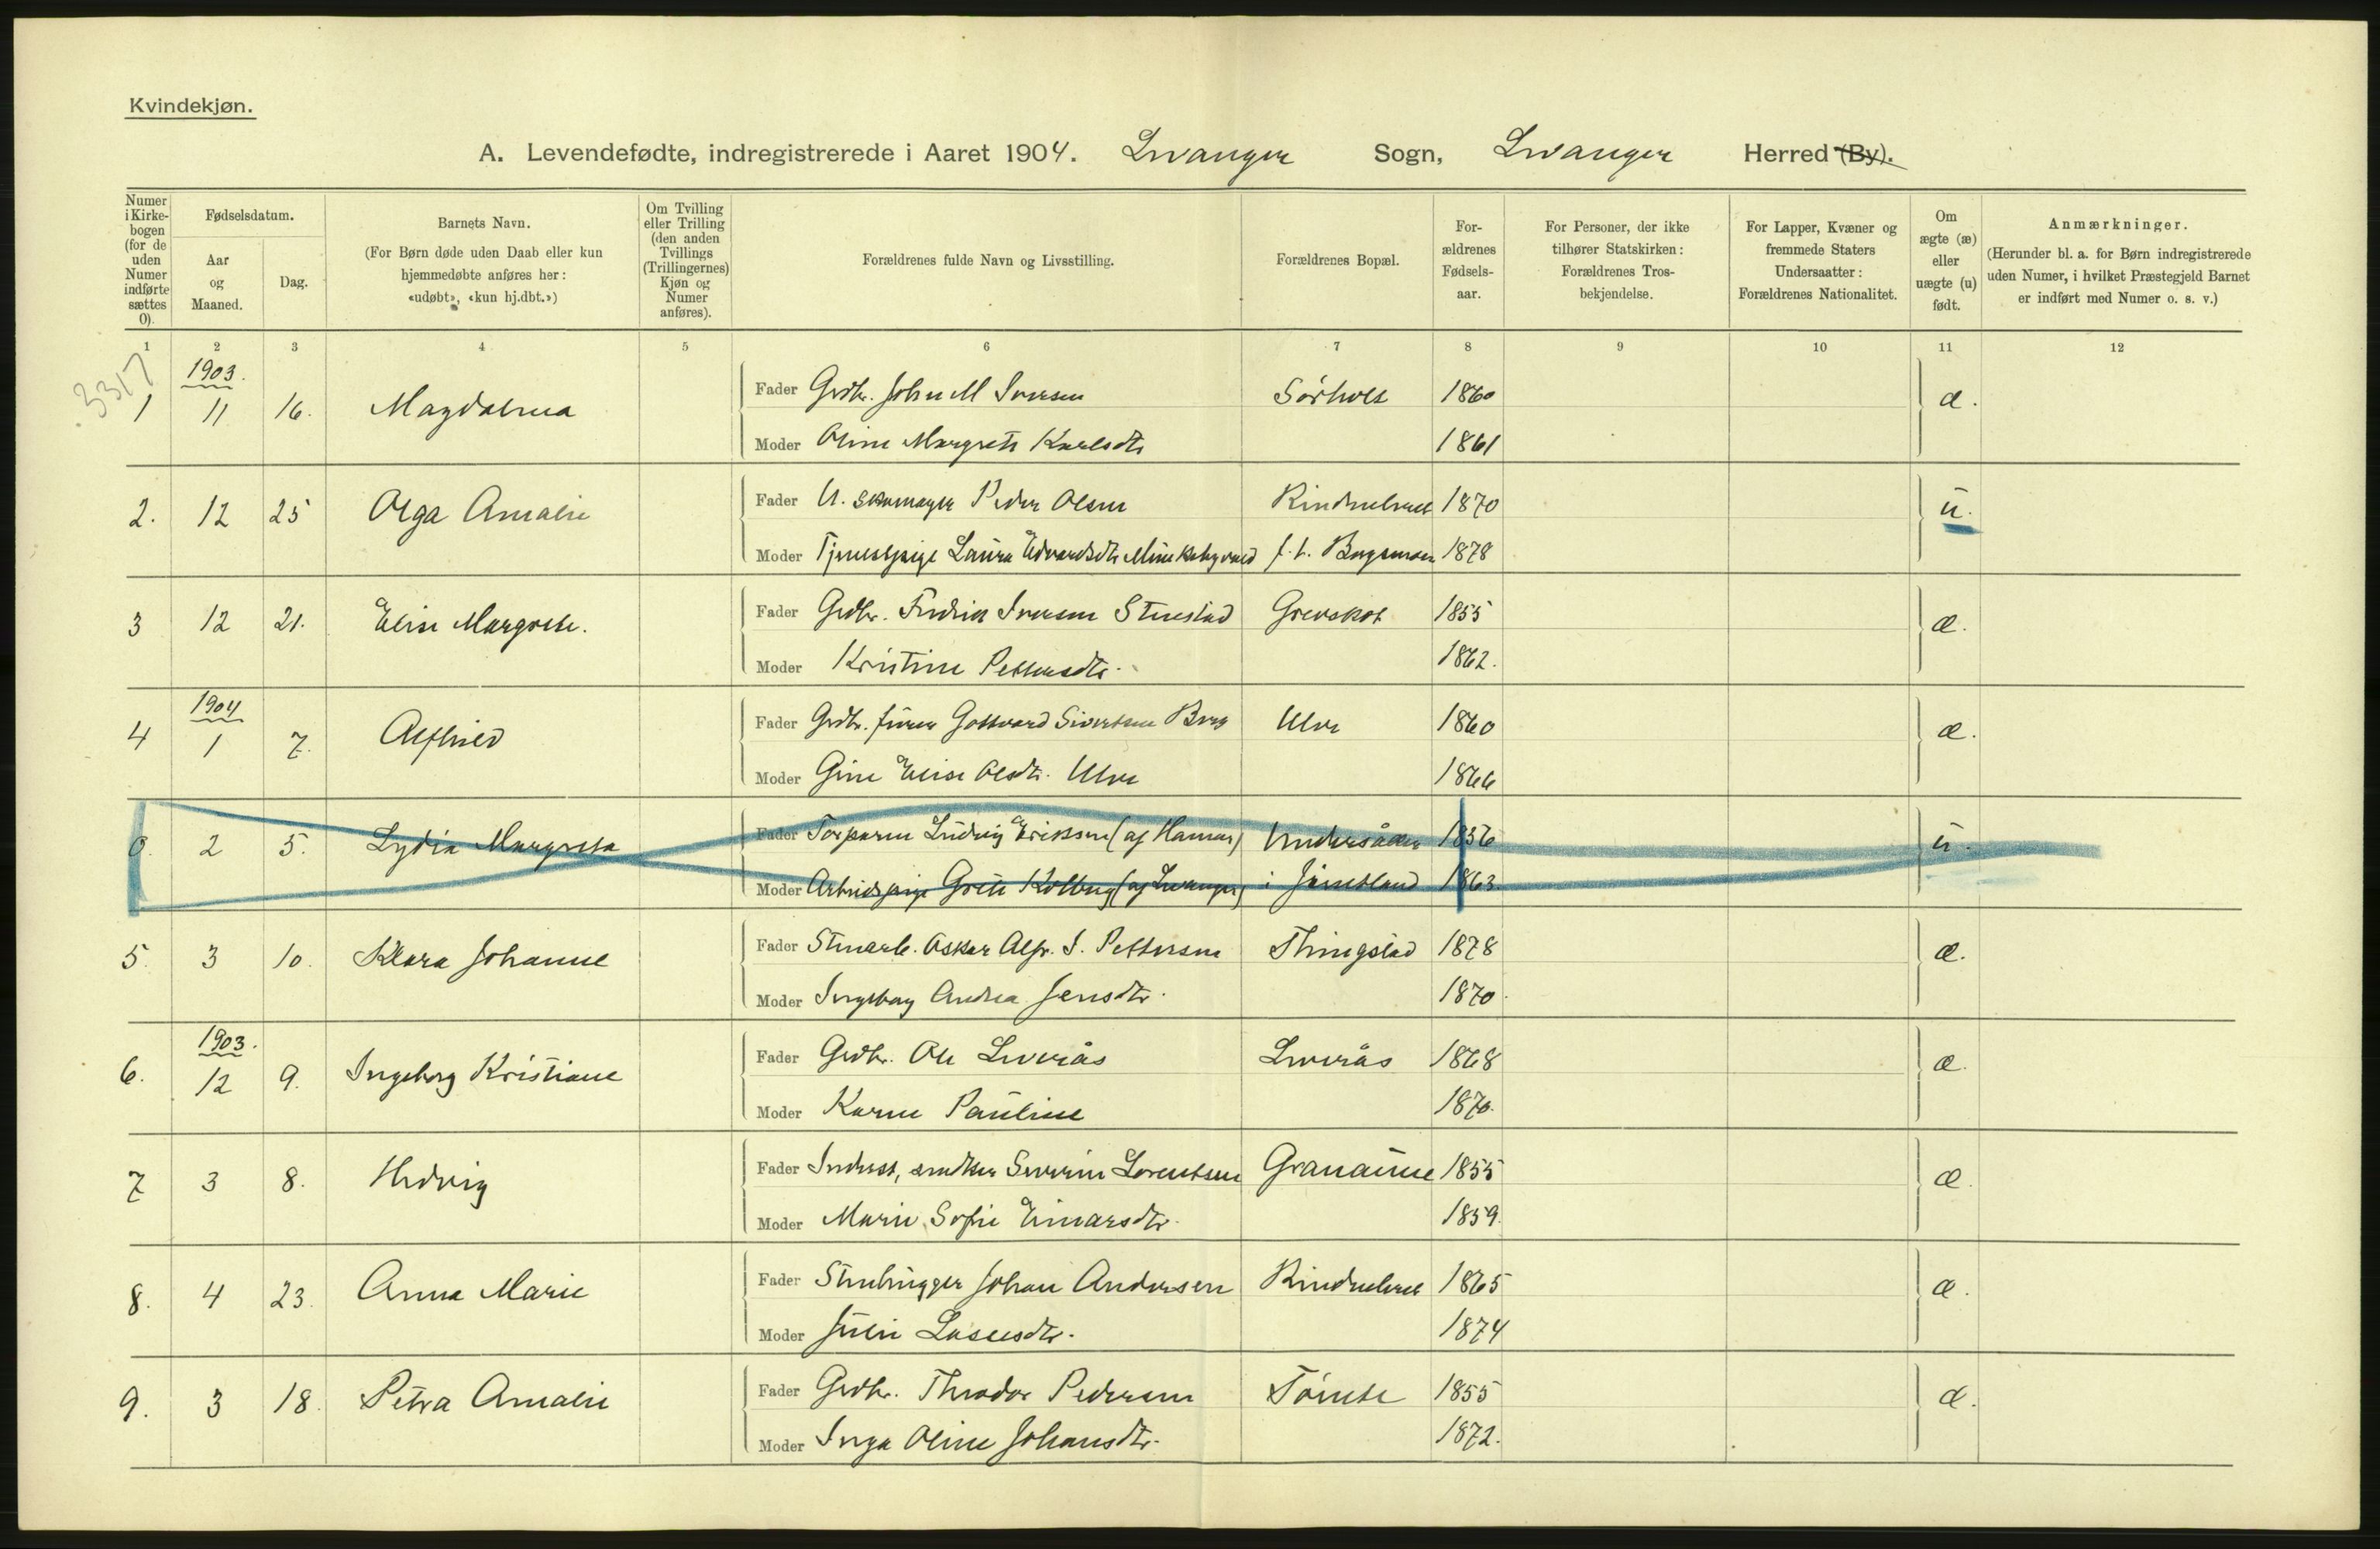 Kvindekjøn.
A. Levendefødte, indregistrerede i Aaret 1904. Levanger Sogn, Levanger Herred (By).
Numer i Kirkebogen (for de uden Numer indførte sættes 0).
Fødselsdatum.
Aar og Maaned.
Dag.
Barnets Navn.
(For Børn døde uden Daab eller kun hjemmedøbte anføres her: «udøbt», «kun hj.dbt.»)
Om Tvilling eller Trilling (den anden Tvillings (Trillingernes) Kjøn og Numer anføres).
Forældrenes fulde Navn og Livsstilling.
Forældrenes Bopæl.
Forældrenes Fødselsaar.
For Personer, der ikke tilhører Statskirken: Forældrenes Trosbekjendelse.
For Lapper, Kvæner og fremmede Staters Undersaatter: Forældrenes Nationalitet.
Om ægte (æ) eller uægte (u) født.
Anmærkninger.
(Herunder bl. a. for Børn indregistrerede uden Numer, i hvilket Præstegjeld Barnet er indført med Numer o. s. v.)
1 2 3 4 5 6 7 8 9 10 11 12
3317
1903.
1 11 16. Magdalena Fader Grdbr. John M Iversen 1860 æ.
Moder Oline Margrete Karlsdtr 1861
2. 12 25 Olga Amalie Fader U. Skomager Peder Olsen Rindselvct 1870 ú.
Moder Tjenestpige Laura Edvardsdtr 1878
3 12 21. Elise Margrete. Fader Grdbr. Fredrik Iversen Stenstad Grevskot 1855 æ.
Moder Kristine Pettersdtr. 1862.
1904
4 1 7. Alfhild Fader Grdbr. Gottvard Sivertsen Berg Ulve 1860 æ.
Moder Gine Elise Olsdtr. Ulve 1866
0. 2 5. Lydia Margreta Fader Torparen Ludvig Eriksen (af Hamar) Undersåker 1856 ú.
Moder Arbeidspige Grete Kolberg (af Levanger) i Jämtland 1863.
5. 3 10. Klara Johanne Fader Stenarb. Oskar Alfr. I. Pettersen Thingstad 1878 æ.
Moder Ingeborg Andrea Jensdtr. 1870.
1903.
6. 12 9. Ingeborg Kristiane Fader Grdbr. Ole 1868 æ.
Moder Karen Pauline 1870.
7 3 8. Hedvig Fader Inderst, Severin Lorentsen Granaune 1855 æ.
Moder Marie Sofie Einarsdtr. 1859.
8. 4 23. Anna Marie Fader Stenhugger Johan Andersen 1865 æ.
Moder Julie Lassesdtr. 1874
9. 3 18. Petra Amalie Fader Grdbr. Theodor Pedersen Tomte 1855 æ.
Moder Inga Oline Johansdtr. 1872.